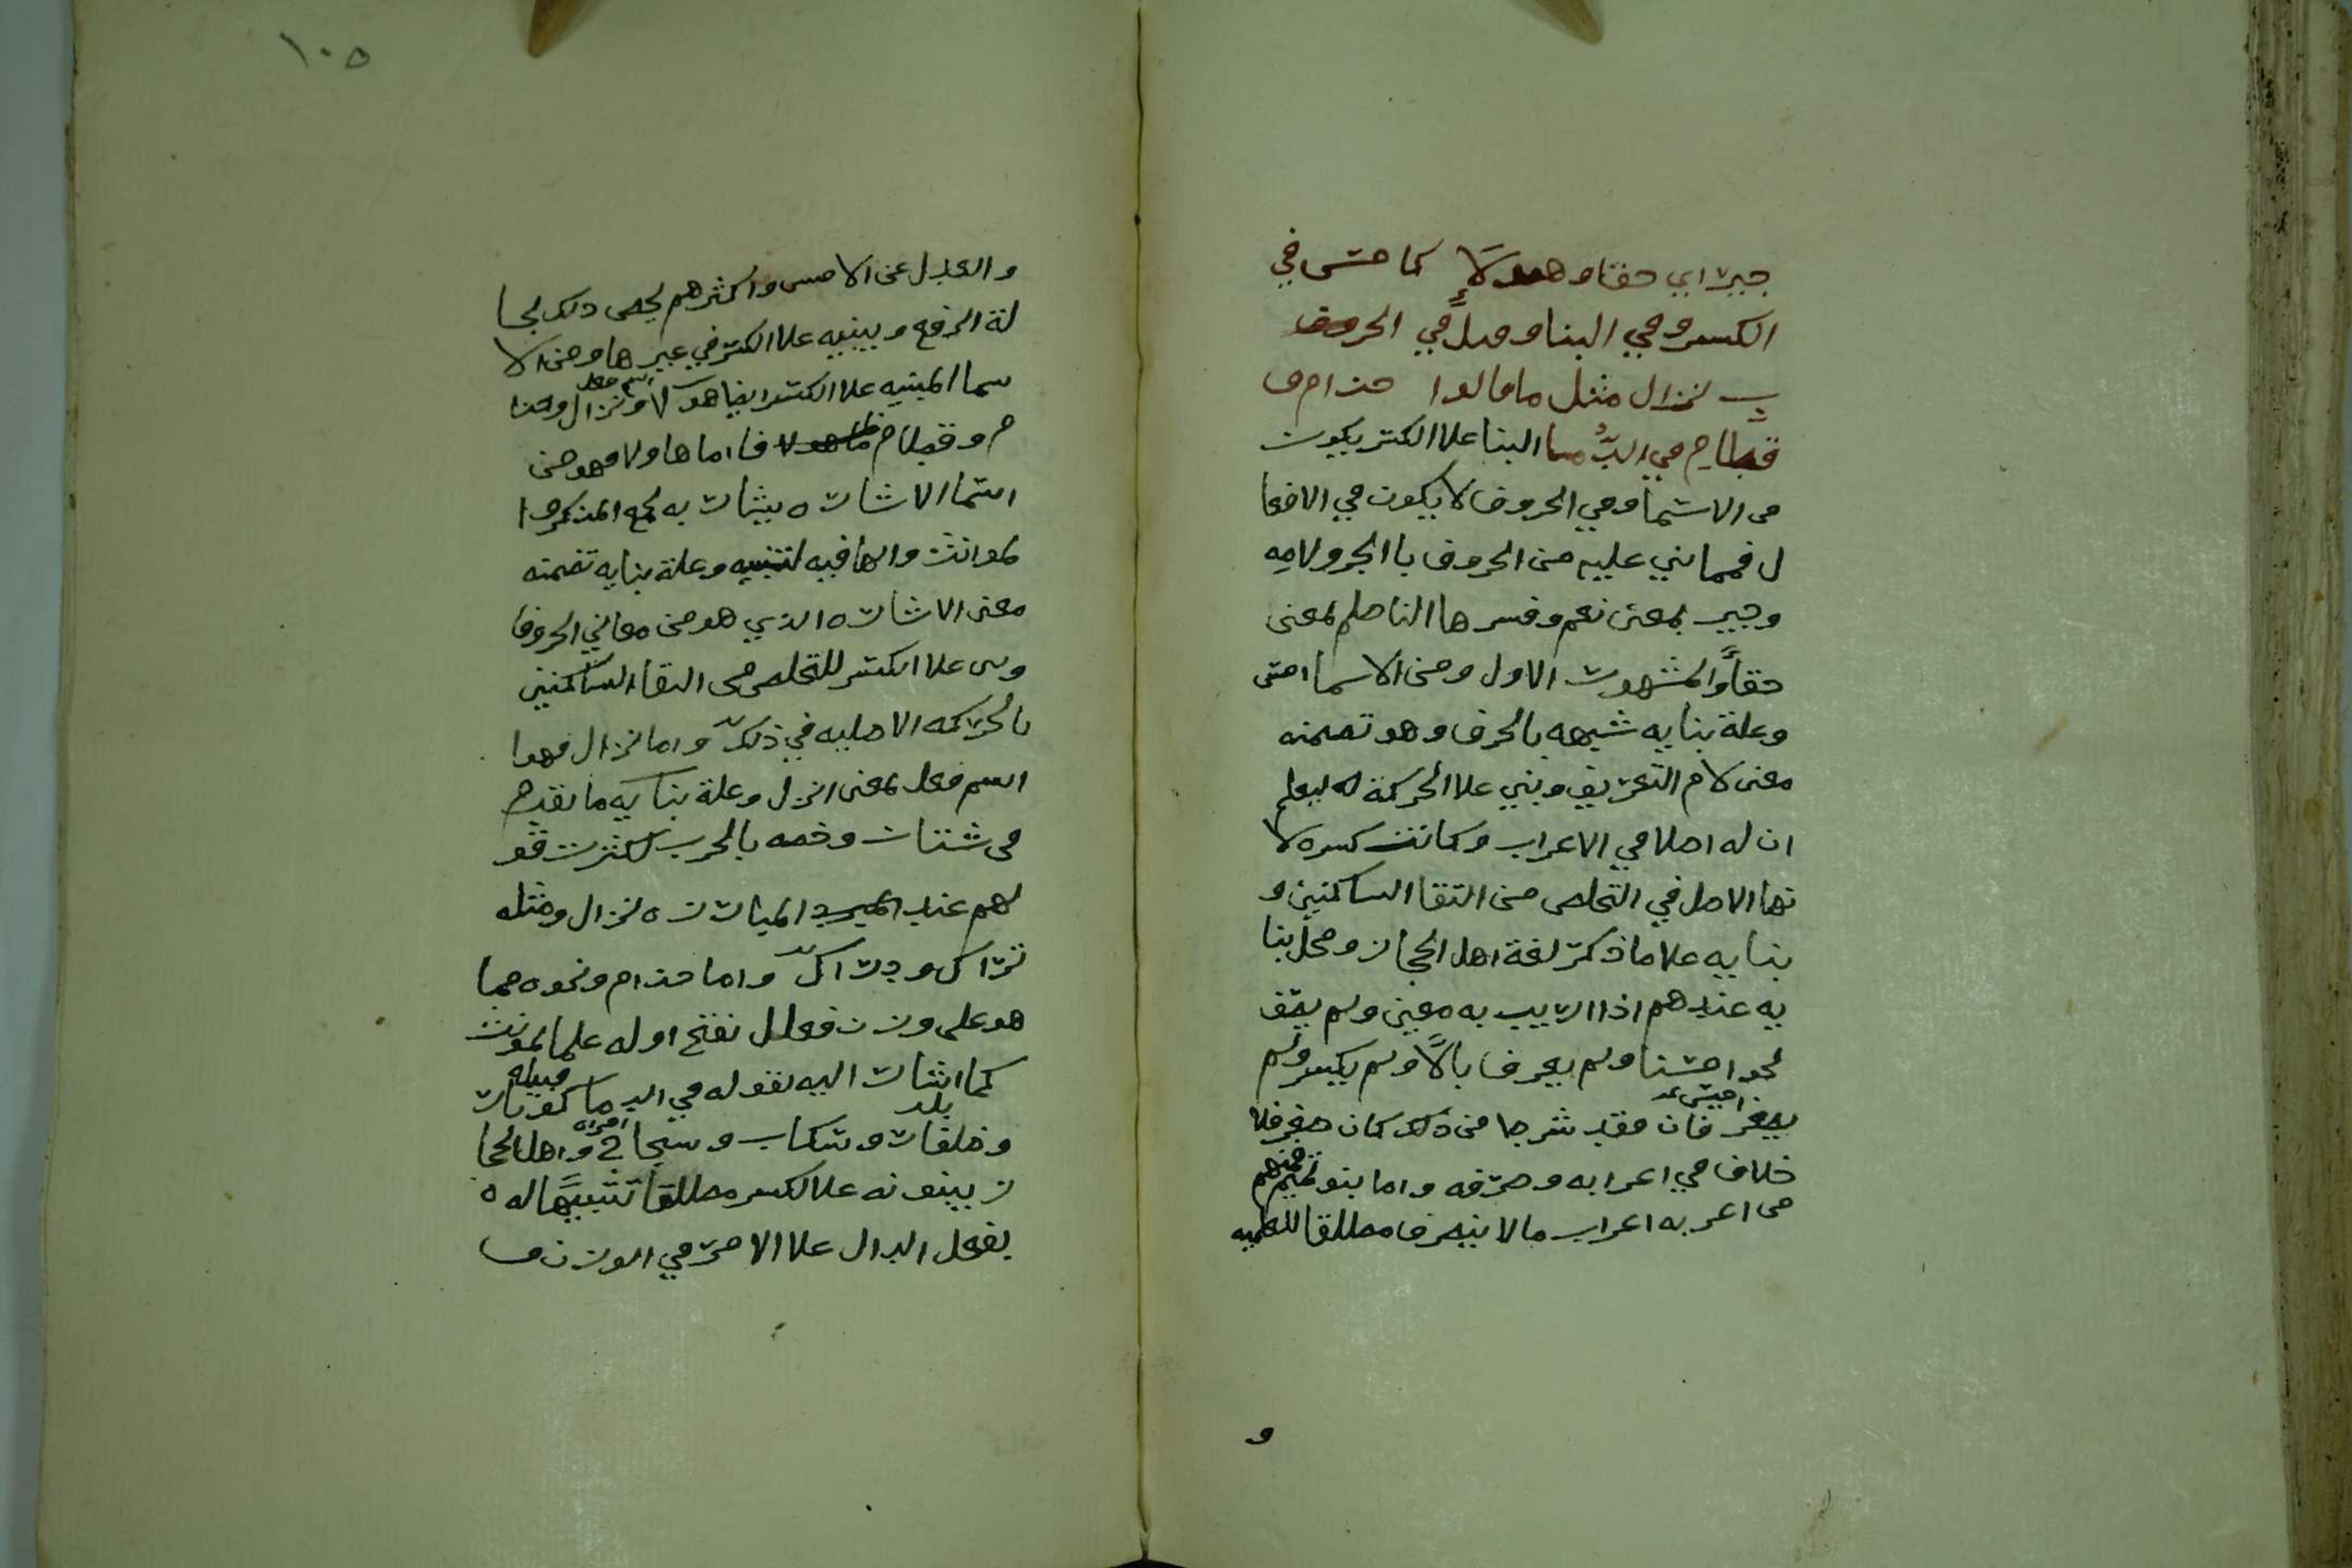 جير اي حقا وهولآ كامس في
الكسر وفي البنا و في الحروف
نزال مثل ما قالوا حذام و
قطام في الدُّما البنا علا الكسر يكون
في الاسما وفي الحروف لا يكون في الافعا
ل فمما بني عليه من الحروف باالجر ولامه
وجير بمعنى نعم وفسرها الناظم بمعنى
حقاً والمشهور الاول ومن الاسما امس
وعلة بنايه شبهه بالحرف وهو تضمنه
معنى لام التعريف وبني علا الحركة ليعلم
ان له اصلا في الاعراب وكانت كسره لا
نها الاصل في التخلص من التقا الساكنين و
بنايه علا ما ذكر لغة اهل الحجاز ومحل بنا
يه عندهم اذا اريد به معين ولم يضف
نحو امسنا ولم يعرف بال ولم يكسر ولم
يصغر فان فقد شرط من ذلك كان معرفلا
خلاف في اعرابه وصرفه واما بنو تميم فمنهم
من اعربه اعراب مالا ينصرف مطلقا للعلميه
و
١٠٥
والعدل عن الامس واكثرهم يخص ذلك بحا
لة الرفع ويبنيه علا الكسر في غيرها ومن الا
سما المبنيه علا الكسر ايضا هولا ونزال وحذا
اسم فعل
م وقطام فاما هاولا فهو من
اسما الاشاره يشار به لجمع المذكر وا
لمونث والها فيه لتنبيه وعلة بنايه تضمنه
معنى الاشاره الذي هو من معاني الحروف
وبني علا الكسر للتخلص من التقا الساكنين
بالحركه الاصليه في ذلك واما نزال فهوا
اسم فعل بمعنى انزل وعلة بنايه ما تقدم
في شتان وخصه بالحرب لكثرت قو
لهم عند المبارزه نزال ومثله
تراك ودراك واما حذام ونحوه مما
هو على وزن فعال بفتح اوله علما لمونث
كما اشار اليه بقوله في الدما كوبار
قبيله
وظفار وسكاب وسجاح واهل الحجا
بلد
امراه
ز يبنونه علا الكسر مطلقا تشبيها له
بفعل الدال علا الامر في الوزن